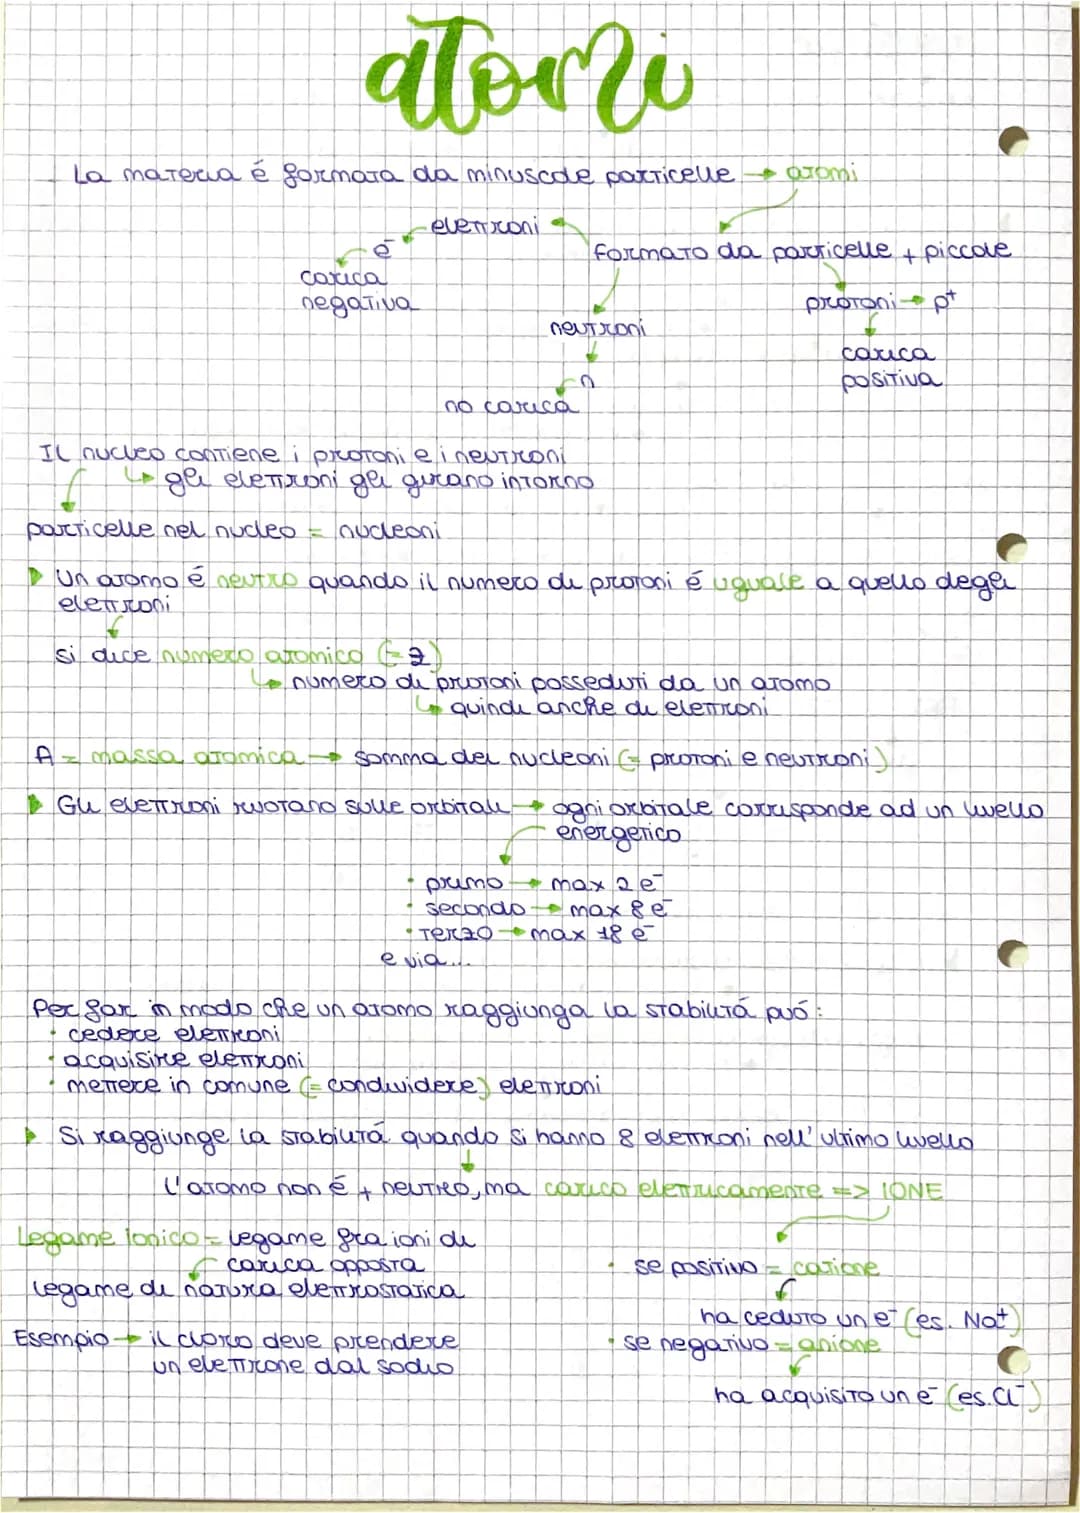 atomi
La materia é formata da minuscole particelle → atomi
elettroni
formato da particelle + piccole
e⁻
carica
negativa
protoni → p⁺
neutroni
carica
positiva
n
no carica
Il nucleo contiene i protoni e i neutroni
↳ gli elettroni gli girano intorno
particelle nel nucleo = nucleoni
▸ Un atomo é neutro quando il numero di protoni é uguale a quello degli
elettroni
si dice numero atomico (= Z)
↳ numero di protoni posseduti da un atomo
↳ quindi anche di elettroni
A = massa atomica → somma dei nucleoni (= protoni e neutroni)
▸ Gli elettroni ruotano sulle orbitali → ogni orbitale corrisponde ad un livello
energetico
• primo → max 2 e⁻
• secondo → max 8 e⁻
• terzo → max 18 e⁻
e via...
Per far in modo che un atomo raggiunga la stabilitá puó:
• cedere elettroni
• acquisire elettroni
• mettere in comune (= condividere) elettroni
▸ Si raggiunge la stabilitá quando si hanno 8 elettroni nell'ultimo livello
l'atomo non é + neutro, ma carico elettricamente => IONE
Legame Ionico = legame fra ioni di
carica opposta
legame di natura elettrostatica
Esempio → il cloro deve prendere
un elettrone dal sodio
• se positivo = catione
ha ceduto un e⁻ (es. Na⁺)
• se negativo = anione
ha acquisito un e⁻ (es. Cl⁻)